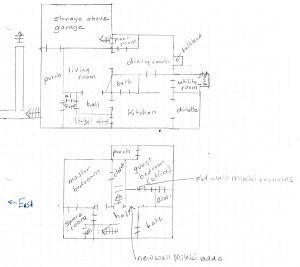 storage above
garage
porch
living
room
dining room
bath
utility
room
hall
Kitchen
dinette
porch
master
bedroom
closet
guest
bedroom
(office)
old wall Mikki removes
East
spare
room
hall
bath
new wall Mikki adds